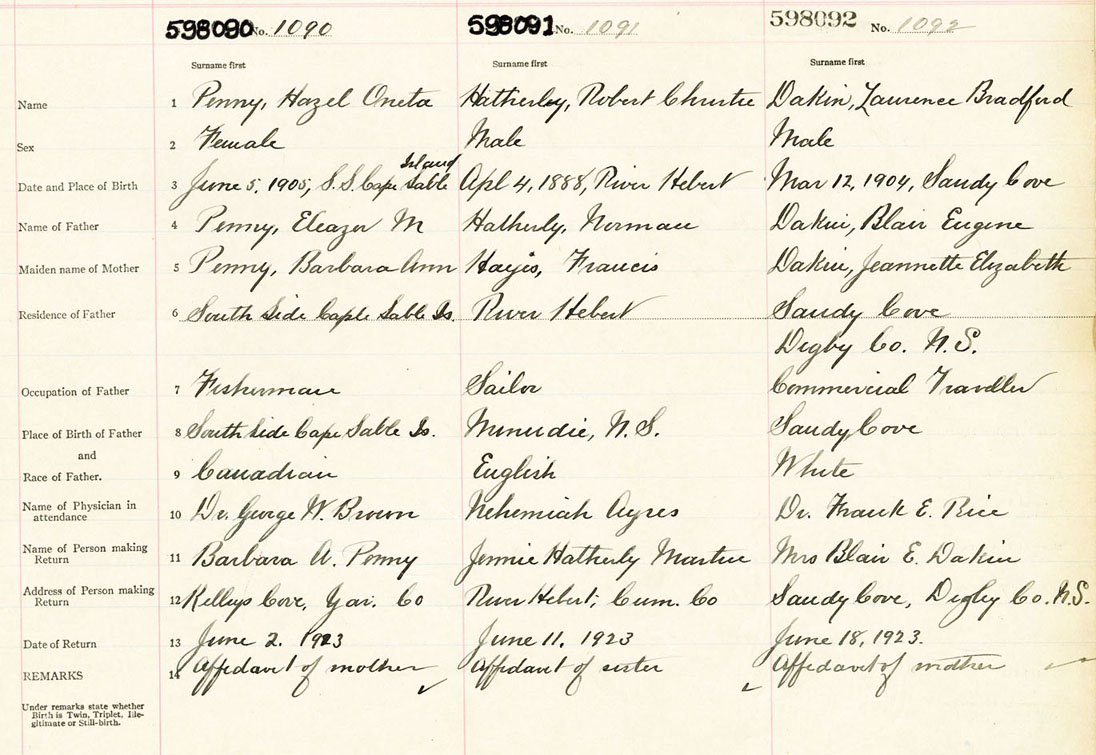 598090 No. 1090 598091 No. 1091 598092 No. 1092
Surname first Surname first Surname first
Name 1 Penny, Hazel Oneta Hatherley, Robert Christie Dakin, Laurence Bradford
Sex 2 Female Male Male
Island
Date and Place of Birth 3 June 5, 1905, S.S. Cape Sable Apl 4, 1888, River Hebert Mar 12, 1904, Sandy Cove
Name of Father 4 Penny, Eleazer M Hatherly, Norman Dakin, Blair Eugene
Maiden name of Mother 5 Penny, Barbara Ann Hayes, Francis Dakin, Jeannette Elizabeth
Residence of Father 6 South Side Caple Sable Is. River Hebert Sandy Cove
Digby Co. N.S.
Occupation of Father 7 Fisherman Sailor Commercial Traveller
Place of Birth of Father 8 South Side Cape Sable Is. Minudie, N.S. Sandy Cove
and
Race of Father. 9 Canadian English White
Name of Physician in attendance 10 Dr. George W. Brown Nehemiah Ayres Dr. Frank E. Rice
Name of Person making Return 11 Barbara A. Penny Jennie Hatherly Mrs Blair E. Dakin
Address of Person making Return 12 Kelleys Cove, Yar. Co River Hebert, Cum. Co Sandy Cove, Digby Co. N.S.
Date of Return 13 June 2. 1923 June 11. 1923 June 18, 1923.
REMARKS 14 Affidavit of mother Affidavit of sister Affidavit of mother
Under remarks state whether
Birth is Twin, Triplet, Ille-
gitimate or Still-birth.